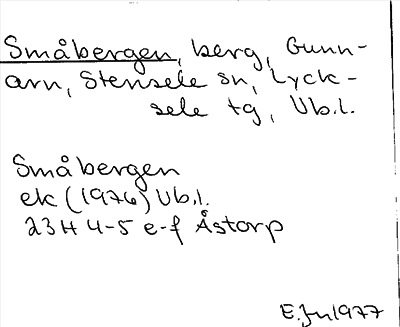 Småbergen, berg, Gunn-
arn, Stensele sn, Lyck-
sele tg, Vb.l.
Småbergen
ek (1976) Vb.l.
23H 4-5 e-f Åstorp
E.Jn 1977